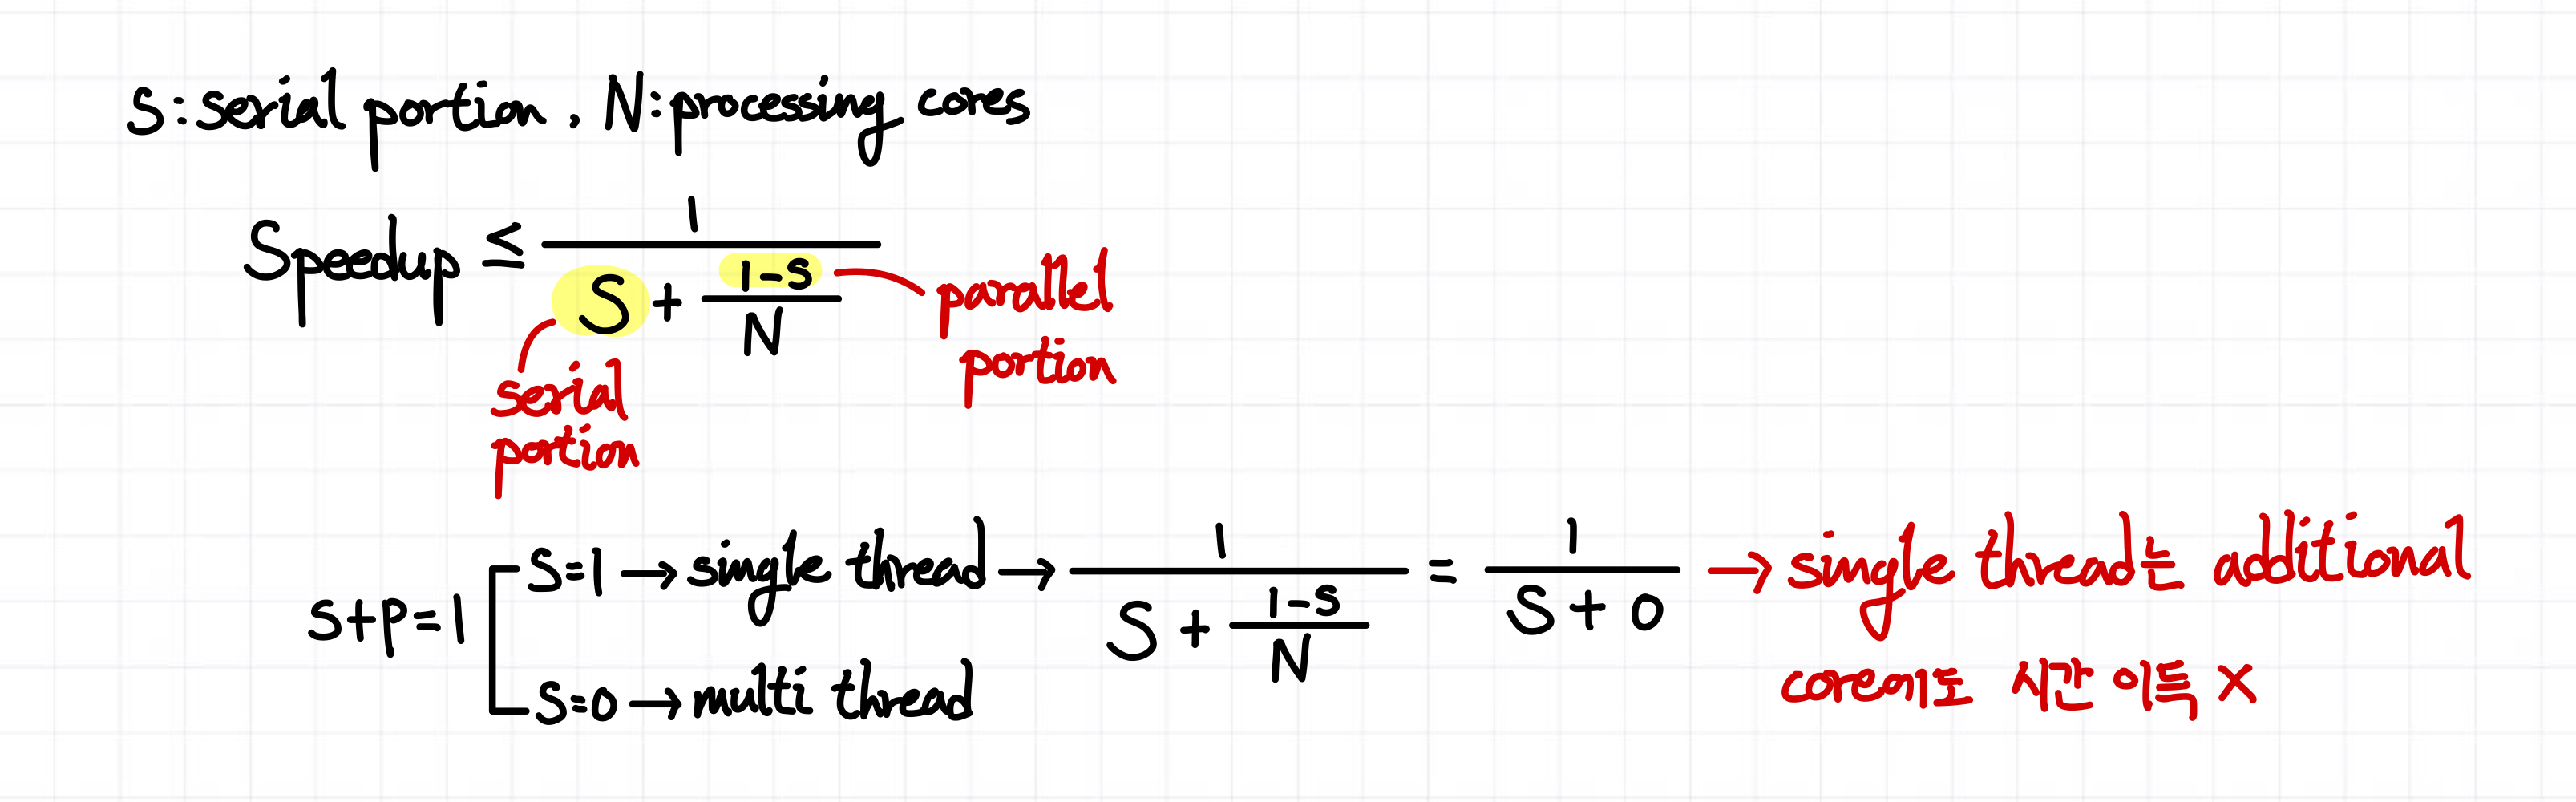 S: serial portion, N: processing cores
Speedup ≤ 1 / (S + (1-S)/N)
parallel
portion
serial
portion
S+P=1
S=1 → single thread → 1 / (S + (1-S)/N) = 1 / (S + 0) → single thread는 additional
core에도 시간 이득 X
S=0 → multi thread